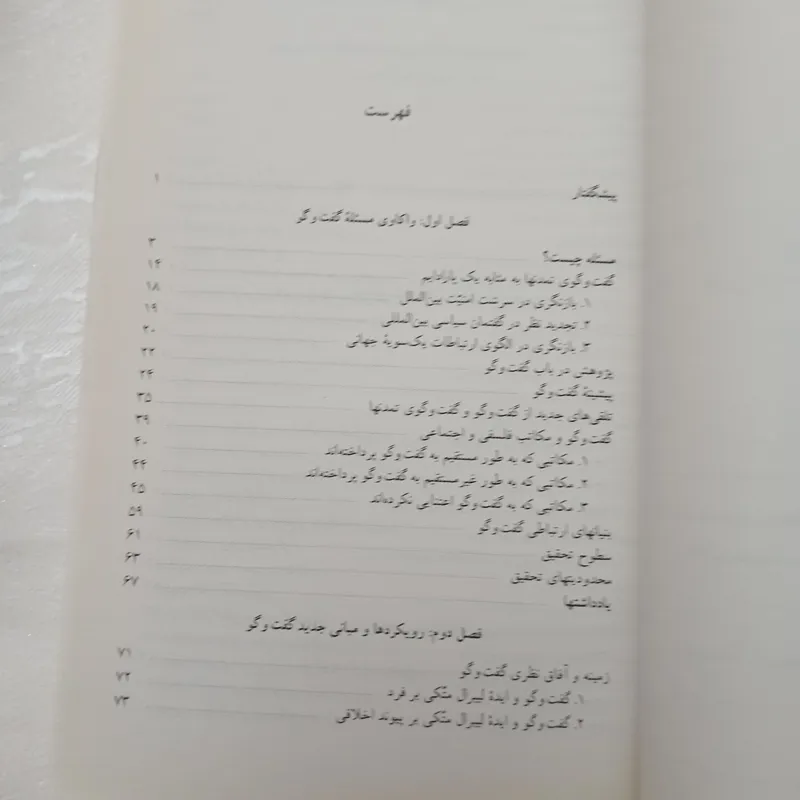 فهرست
پیشگفتار ۱
فصل اول: واکاوی مسئلهٔ گفت‌وگو
مسئله چیست؟ ۳
گفت‌وگوی تمدنها به مثابه یک پارادایم ۱۴
۱. بازنگری در سرشت امنیت بین‌الملل ۱۸
۲. تجدید نظر در گفتمان سیاسی بین‌المللی ۱۹
۳. بازنگری در الگوی ارتباطات یک‌سویهٔ جهانی ۲۰
پژوهش در باب گفت‌وگو ۲۲
پیشینهٔ گفت‌وگو ۲۴
تلقی‌های جدید از گفت‌وگو و گفت‌وگوی تمدنها ۳۵
گفت‌وگو و مکاتب فلسفی و اجتماعی ۳۹
۱. مکاتبی که به طور مستقیم به گفت‌وگو پرداخته‌اند ۴۰
۲. مکاتبی که به طور غیرمستقیم به گفت‌وگو پرداخته‌اند ۴۴
۳. مکاتبی که به گفت‌وگو اعتنایی نکرده‌اند ۴۵
بنیانهای ارتباطی گفت‌وگو ۵۹
سطوح تحقیق ۶۱
محدودیتهای تحقیق ۶۳
یادداشتها ۶۷
فصل دوم: رویکردها و مبانی جدید گفت‌وگو
زمینه و آفاق نظری گفت‌وگو ۷۱
۱. گفت‌وگو و ایدهٔ لیبرال متّکی بر فرد ۷۲
۲. گفت‌وگو و ایدهٔ لیبرال متّکی بر پیوند اخلاقی ۷۳